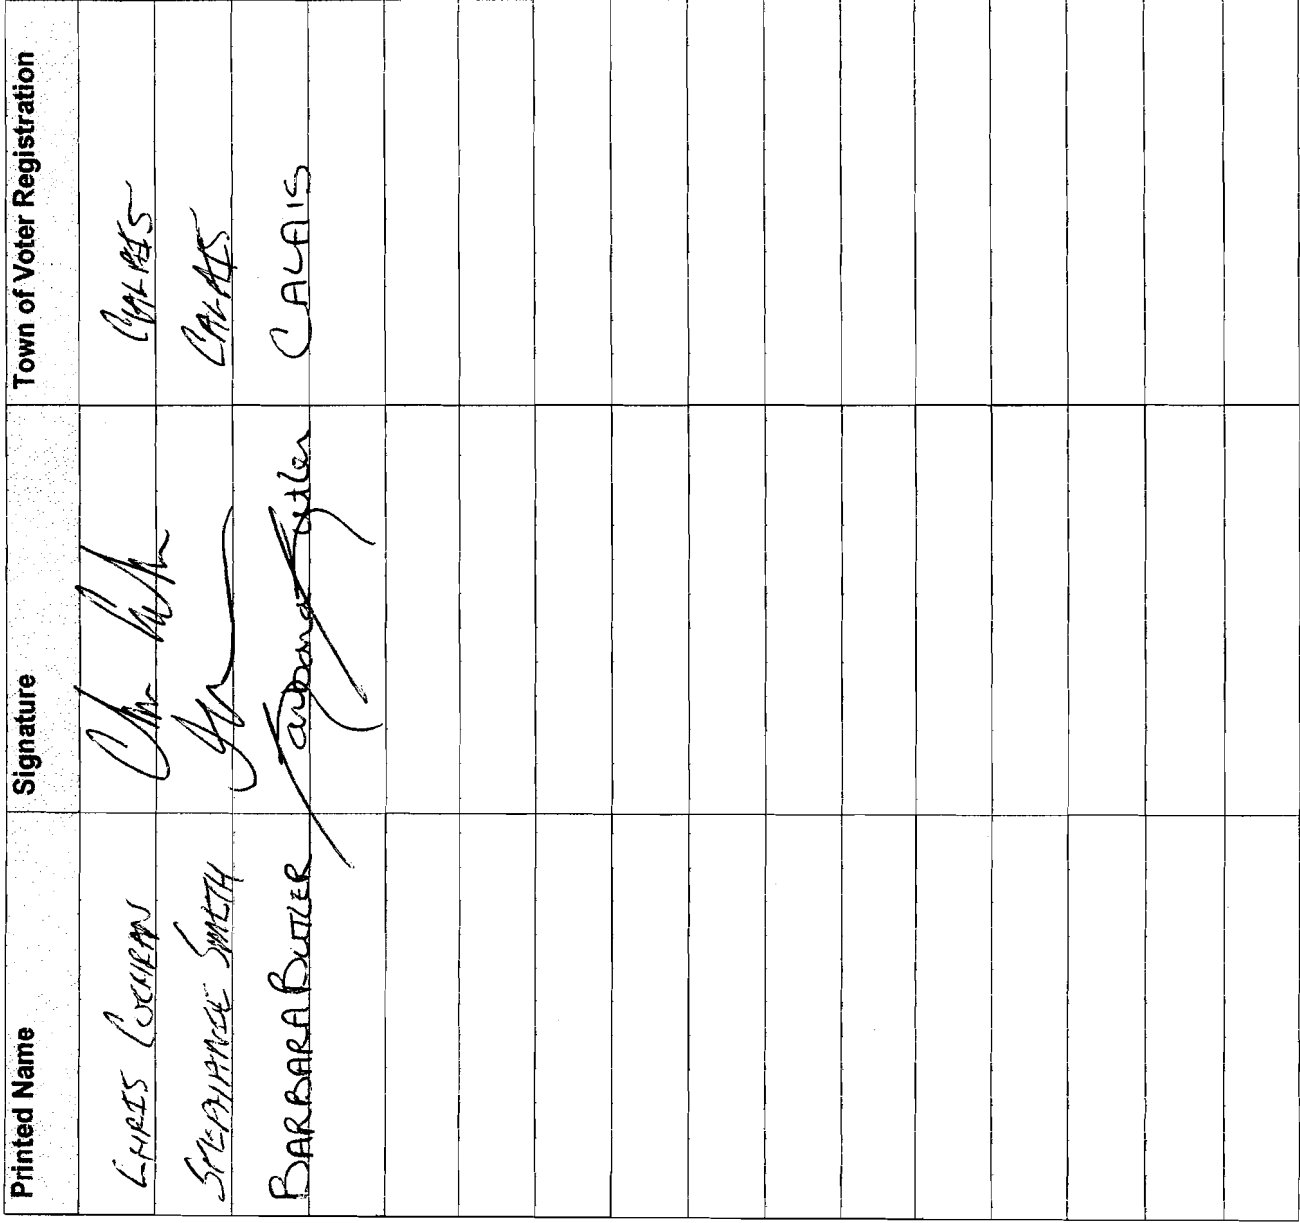 Printed Name Signature Town of Voter Registration
CHRIS COCHRAN CALAIS
STEPHANIE SMITH CALAIS
BARBARA BUTLER Barbara Butler CALAIS